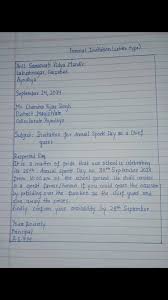 Formal Invitation (Letter type)
Saraswati Vidya Mandir
Ayodhya
September 24, 2024
Mr. Chandra Vijay Singh
District Magistrate
Collectorate Ayodhya
Subject: Invitation for Annual Sport Day as a Chief
guest
Respected Sir
It is a matter of pride that our school is celebrating
its Annual Sport Day on 30th September 2024
from 10:00 am at the school ground. It shall render
us a great honour if you could grace the occasion
by presiding over the function as the chief guest and
give away the prizes.
Kindly confirm your availability by 28th September.
Yours Sincerely
Principal